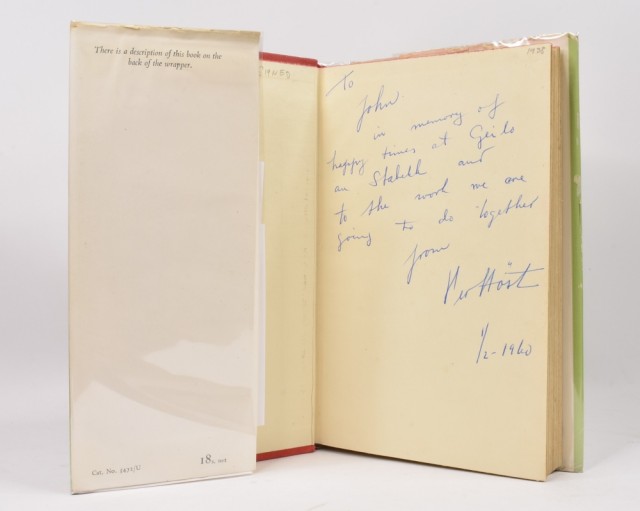 There is a description of this book on the
back of the wrapper.
Cat. No. 2431/U
18s. net
To
John.
in memory of
happy times at Geilo
and
to the work we are
going to do together
from
Per Høst
1/2-1960